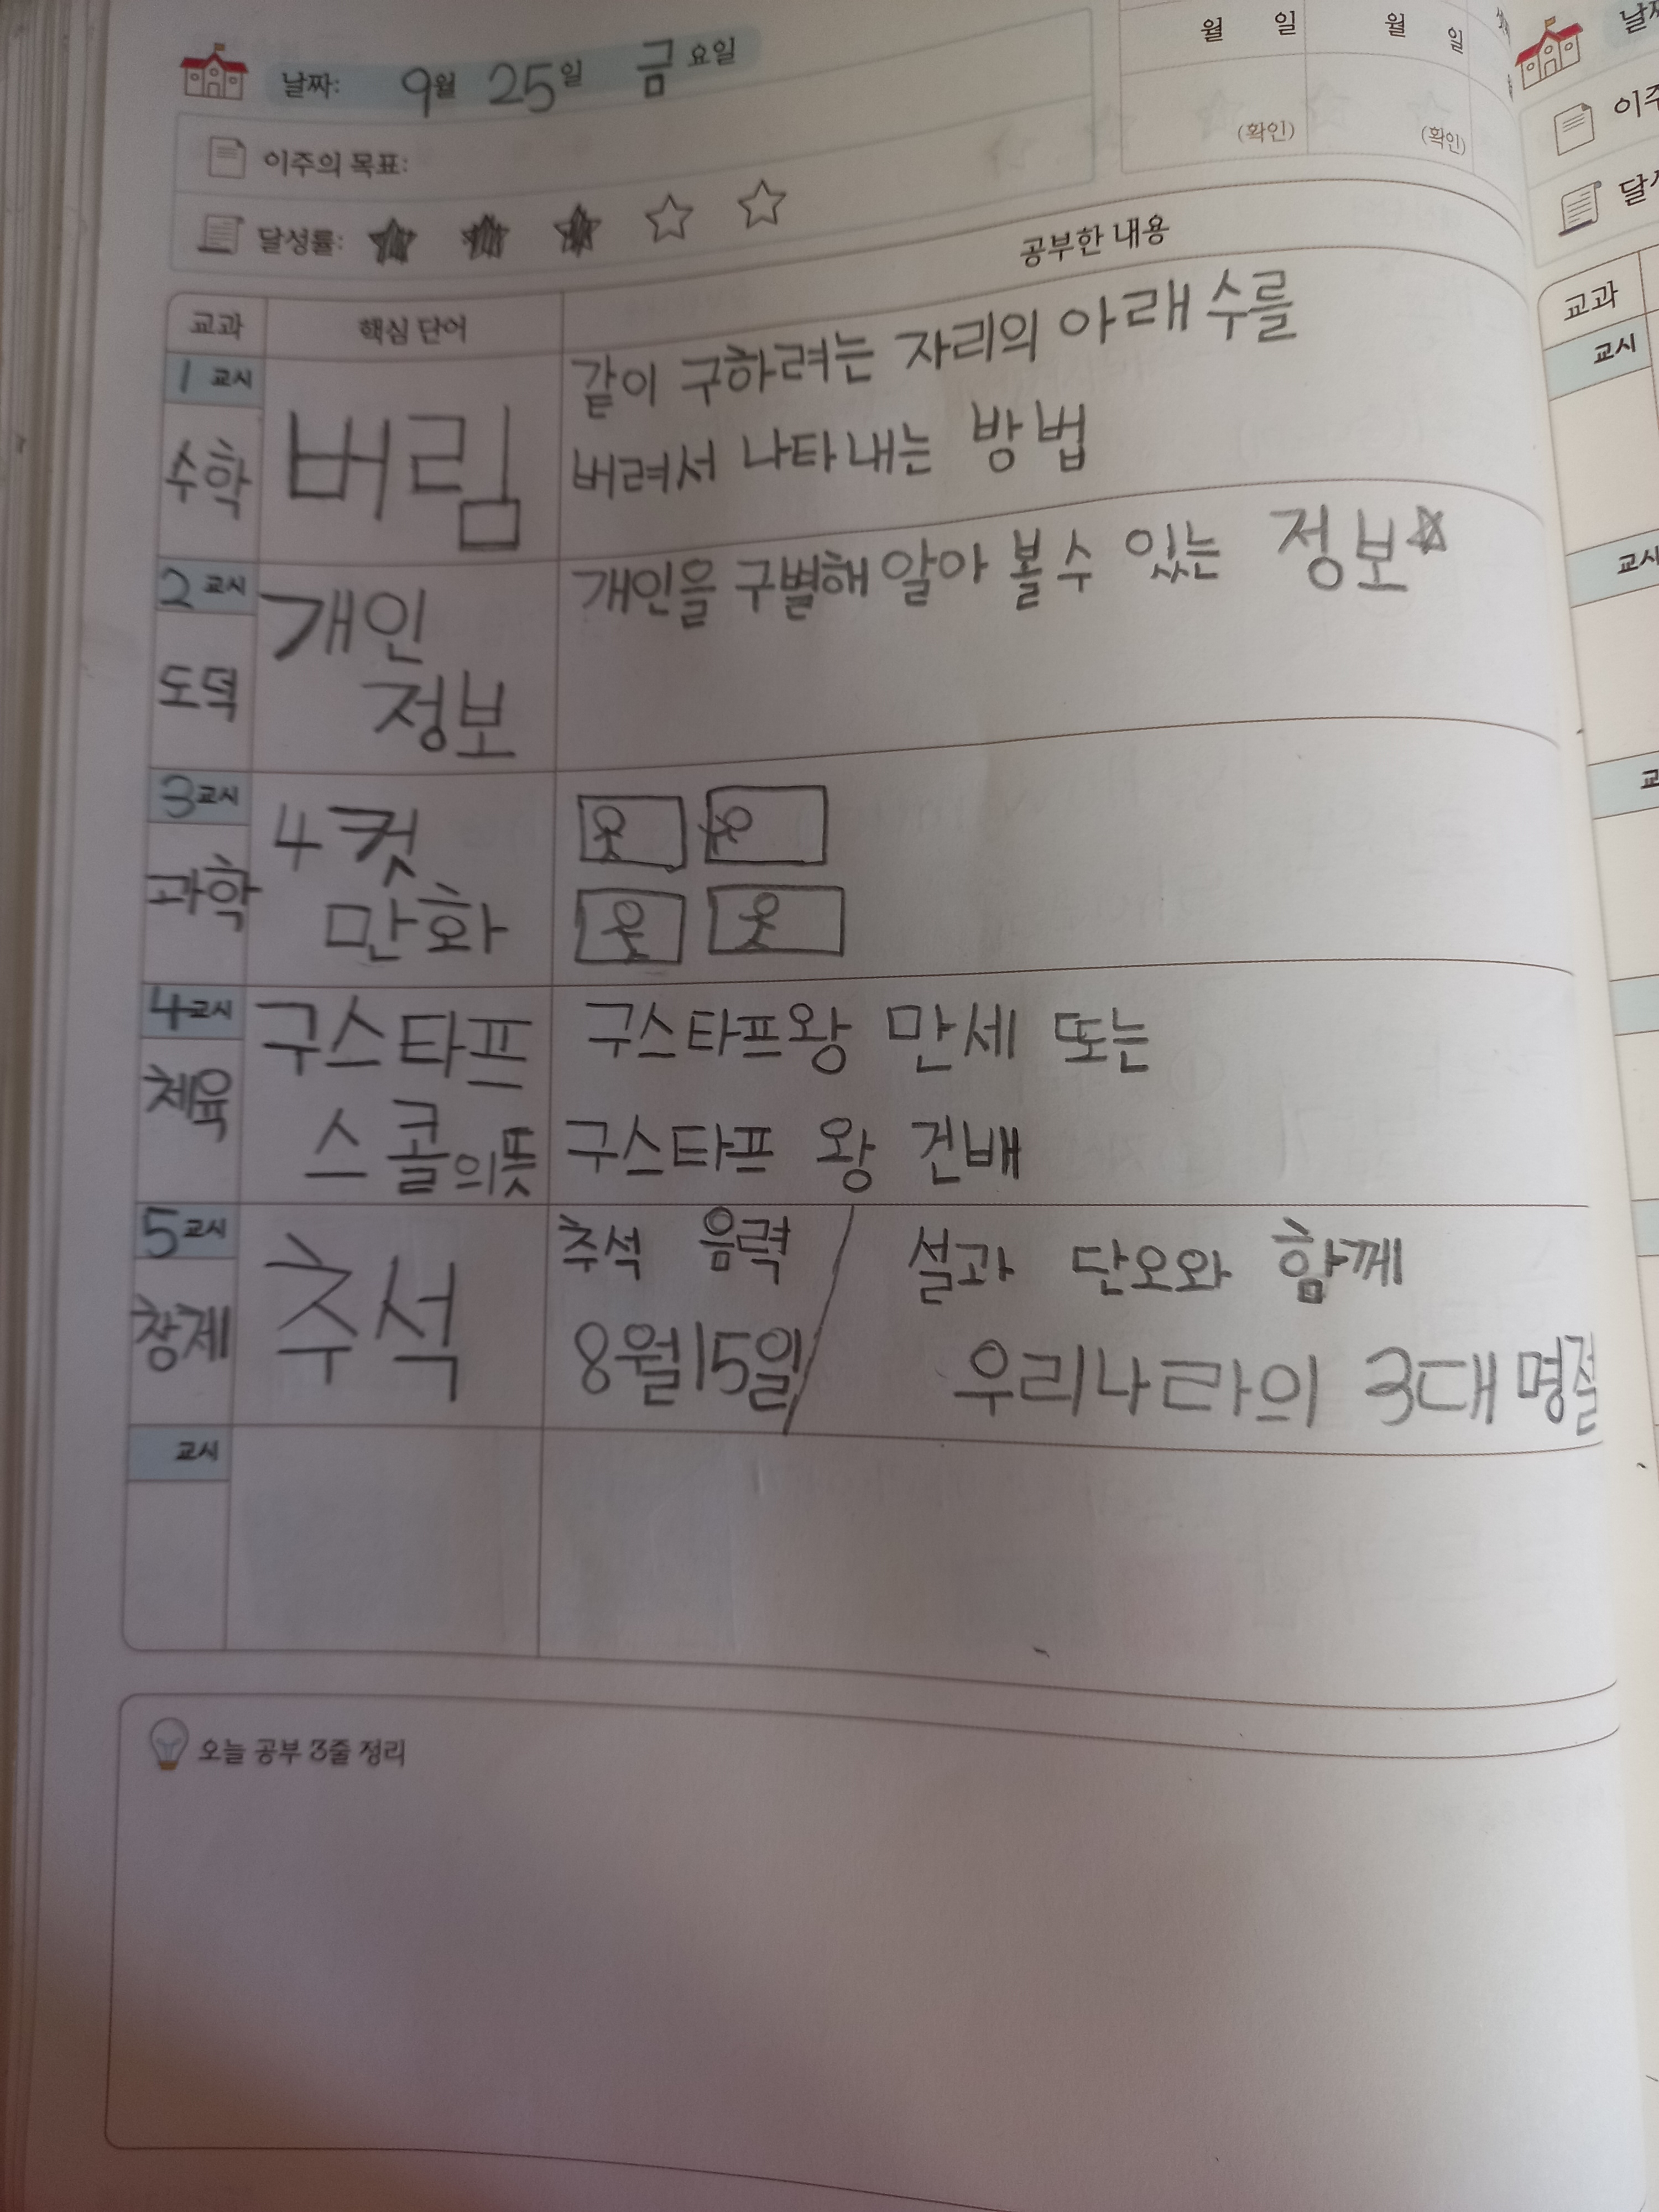 날짜: 9월 25일 금요일
이주의 목표:
달성률:
월 일 월 일
(확인) (확인)
교과 핵심 단어 공부한 내용
1교시
수학
버림
같이 구하려는 자리의 아래 수를
버려서 나타내는 방법
2교시
도덕
개인
정보
개인을 구별해 알아 볼 수 있는 정보
3교시
과학
4컷
만화
4교시
체육
구스타프
스콜의 뜻
구스타프왕 만세 또는
구스타프 왕 건배
5교시
창체
추석
추석 음력
8월 15일
설과 단오와 함께
우리나라의 3대 명절
교시
오늘 공부 3줄 정리
교과
교시